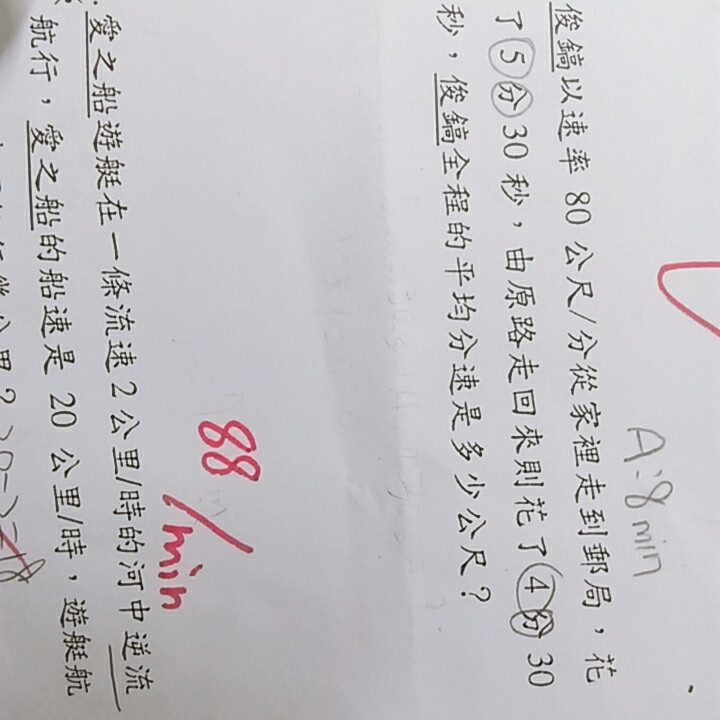 俊鎬以速率 80 公尺/分從家裡走到郵局，花
了 5 分 30 秒，由原路走回來則花了 4 分 30
秒，俊鎬全程的平均分速是多少公尺？
A:8 min
88 /min
愛之船遊艇在一條流速 2 公里/時的河中逆流
航行，愛之船的船速是 20 公里/時，遊艇航
公里？20-2=18